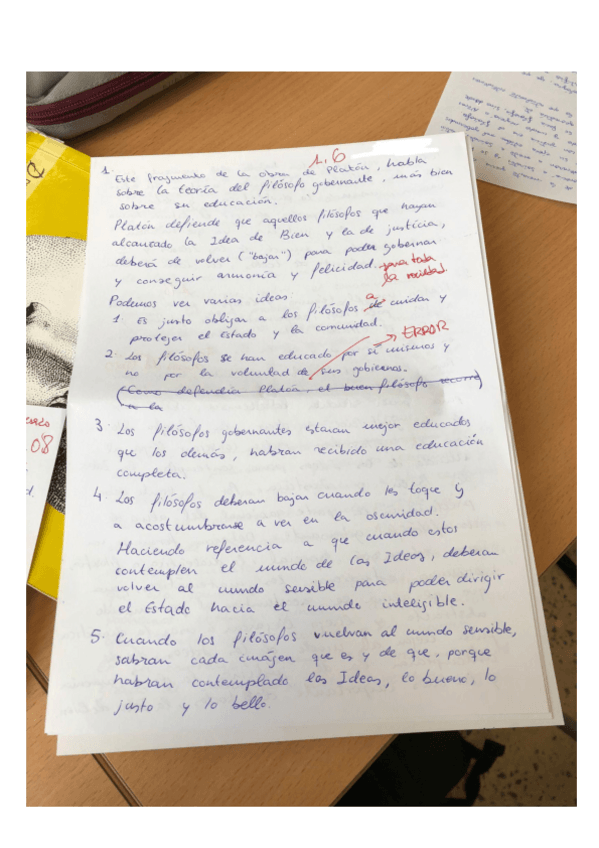 1,6
1. Este fragmento de la obra de Platón, habla
sobre la teoría del filósofo gobernante, más bien
sobre su educación.
Platón defiende que aquellos filósofos que hayan
alcanzado la Idea de Bien y la de justicia,
deberá de volver ("bajar") para poder gobernar
y conseguir armonía y felicidad. para toda
la sociedad.
Podemos ver varias ideas
1. Es justo obligar a los filósofos de a cuidar y
proteger el Estado y la comunidad.
2. Los filósofos se han educado por sí mismos y → ERROR
no por la voluntad de sus gobiernos.
(Como defendía Platón, el buen filósofo recurre)
a la
3. Los filósofos gobernantes estaran mejor educados
que los demás, habran recibido una educación
completa.
4. Los filósofos deberan bajar cuando les toque y
a acostumbrarse a ver en la oscuridad.
Haciendo referencia a que cuando estos
contemplen el mundo de las Ideas, deberan
volver al mundo sensible para poder dirigir
el Estado hacia el mundo inteligible.
5. Cuando los filósofos vuelvan al mundo sensible,
sabran cada imájen que es y de que, porque
habran contemplado las Ideas, lo bueno, lo
justo y lo bello.
08